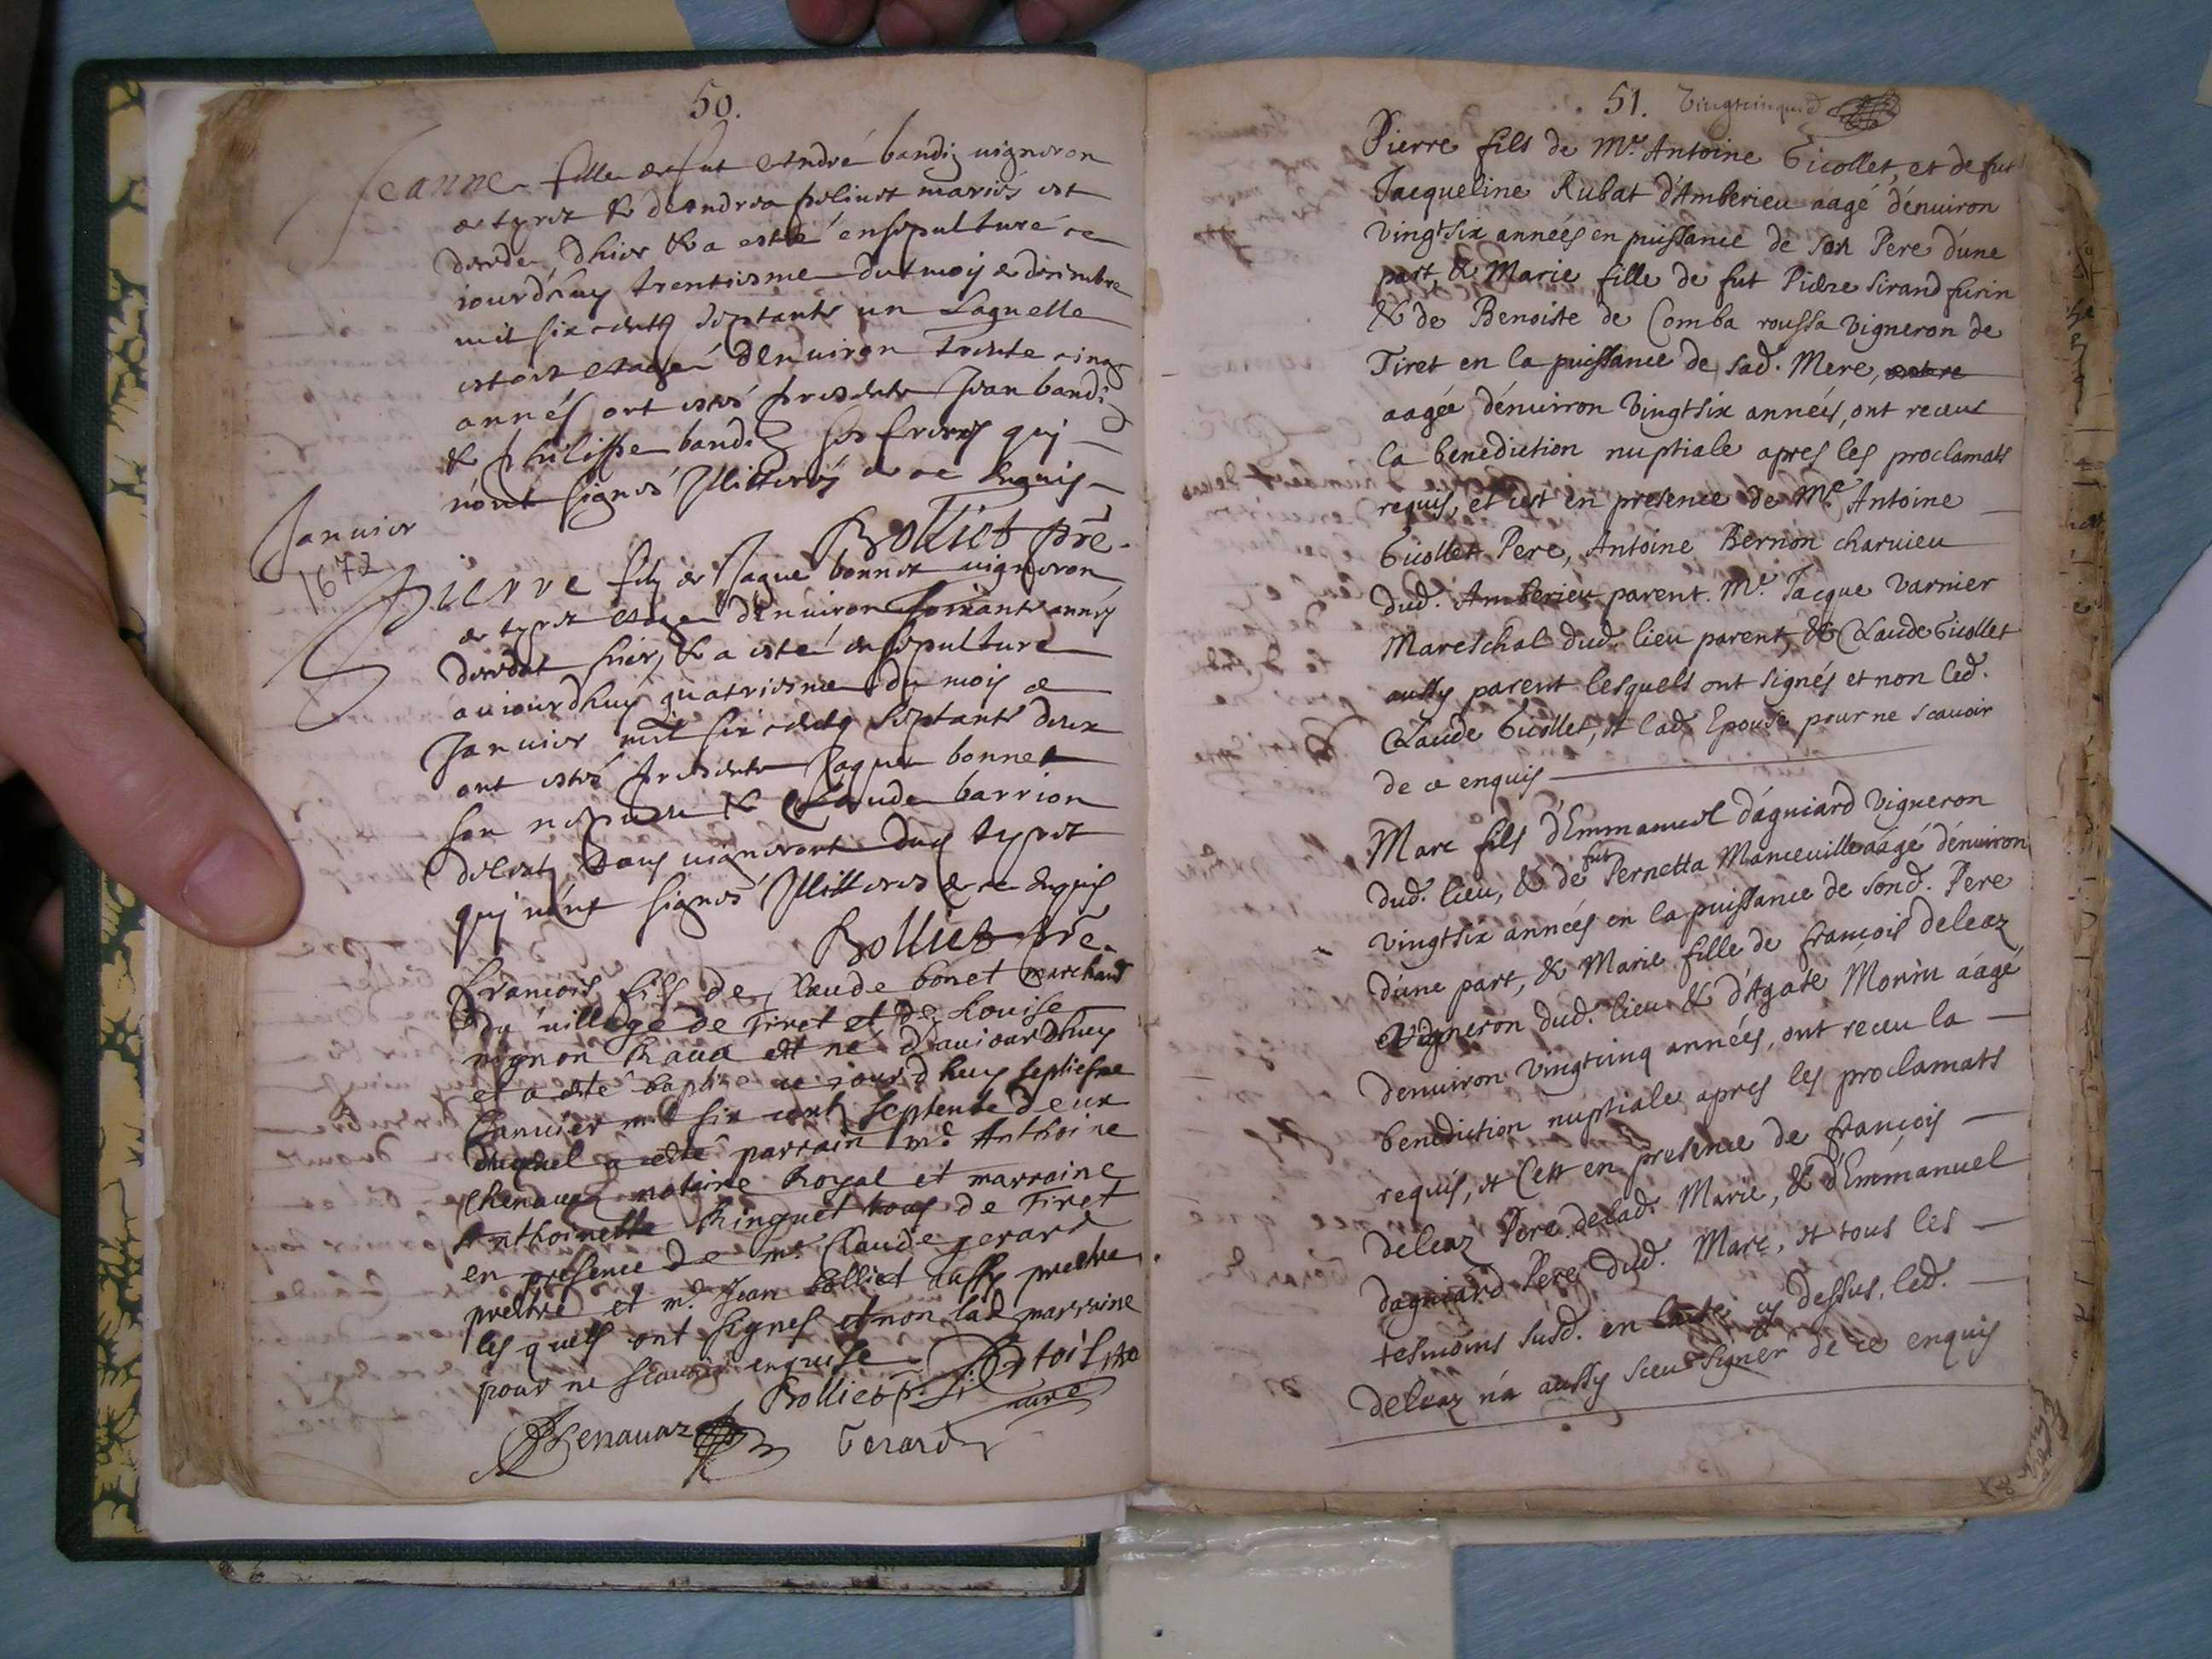 50.
Jeanne fille de fut André bandiz uigneron
de tyret & de andrea poliuet mariés est
decedee d'hier & a esté ensepulture ce
iourdhuy trentiesme du mois de decembre
mil six cents septante un Laquelle
estoit eagée d'enuiron trente cinq
annés ont estés presents Jean bandiz
& philippe bandiz ses freres qui
n'ont signés Illitterés de ce enquis
Rolliet pre.
Januier
1672
Pierre filz de Jaque bonnet uigneron
de tyret eage d'enuiron soixante annés
decedat hier, & a esté ensepulture
auiourdhuy quatriesme du mois de
Januier mil six cents septante deux
ont estés presents Jaque bonnet
son nepueu & Claude barrion
tous uignerons dud tyret
qui n'ont signés Illitteres de ce enquis
Rolliet pre.
francois fils de Claude bonet marchand
du uillage de Tiret et de Louise
est né d'auiourdhuy
et a esté baptise ce jourdhuy septiesme
Januier mil six cent septente deux
duquel a esté parrain me Anthoine
Chenauaz notaire Royal et marraine
Anthoinette Ringuet tous de Tiret
en presence de mre Claude gerard
prestre et mre Jean Rolliet aussy prestre
les quels ont signes et non lad marraine
pour ne scauoir enquise
Rolliet p.
curé
Chenauaz Gerard
51. Vingtcinqu
Pierre fils de Me. Antoine Guollet, et de fut
Jacqueline Rubat d'Amberieu aagé d'enuiron
vingtsix années en puissance de son Pere d'une
part, & Marie fille de fut Pierre Sirand furin
& de Benoiste de Comba roussa vigneron de
Tiret en la puissance de sad. Mere,
aagée d'enuiron vingtsix années, ont receus
la benediction nuptiale apres les proclamats
requis, et c'est en presence de Me. Antoine
Guollet Pere, Antoine Bernon charuieu
dud. Amberieu parent. Me. Jacque Varnier
Mareschal dud. lieu parent, & Claude Guollet
aussy parent lesquels ont signés et non led.
Claude Guollet, et lad. Epouse pour ne scauoir
de ce enquis
Marc fils d'Emmanuel d'agniard vigneron
dud. lieu, & de fut Pernetta Manceuille aagé d'enuiron
vingtsix années en la puissance de sond. Pere
d'une part, & Marie fille de francois deleaz
vigneron dud. lieu & d'Agate Monin aagé
denuiron vingtcinq années, ont receu la
benediction nuptiale apres les proclamats
requis, et c'est en presence de francois
deleaz Pere delad. Marie, & d'Emmanuel
dagniard Pere dud. Marc, et tous les
tesmoins susd. en l'acte cy dessus, led.
deleaz n'a aussy sceu signer de ce enquis